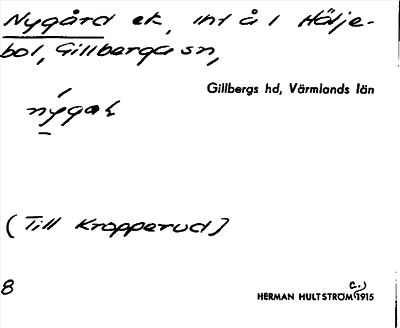 Nygård ek, int å 1 Hälje-
bol, Gillberga sn,
Gillbergs hd, Värmlands län
nygaɫ
(Till Kropperud)
8
HERMAN HULTSTRÖM c.) 1915